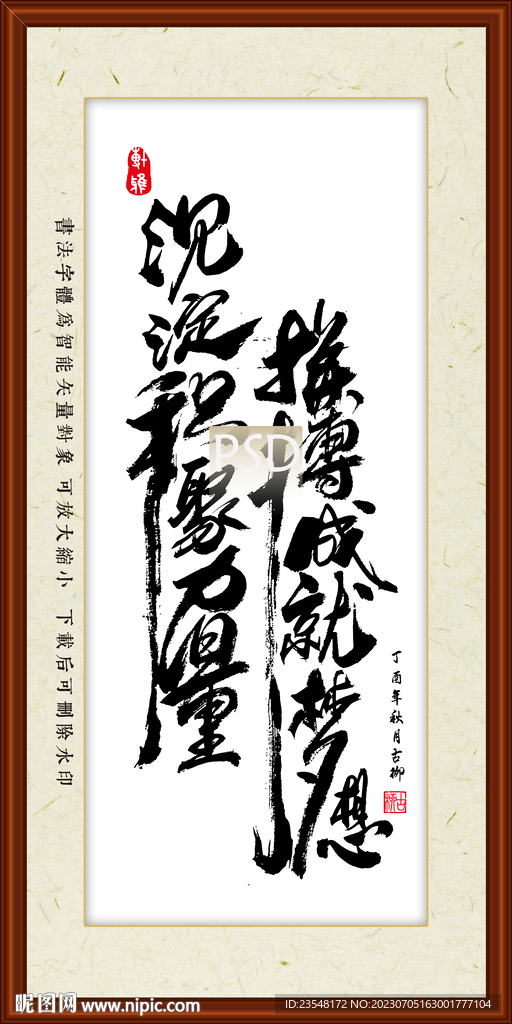 軒雅
沉淀积聚力量
拼搏成就梦想
丁酉年秋月古柳
書法字體為智能矢量對象 可放大縮小 下載后可刪除水印
PSD
昵图网 www.nipic.com
ID:23548172 NO:20230705163001777104